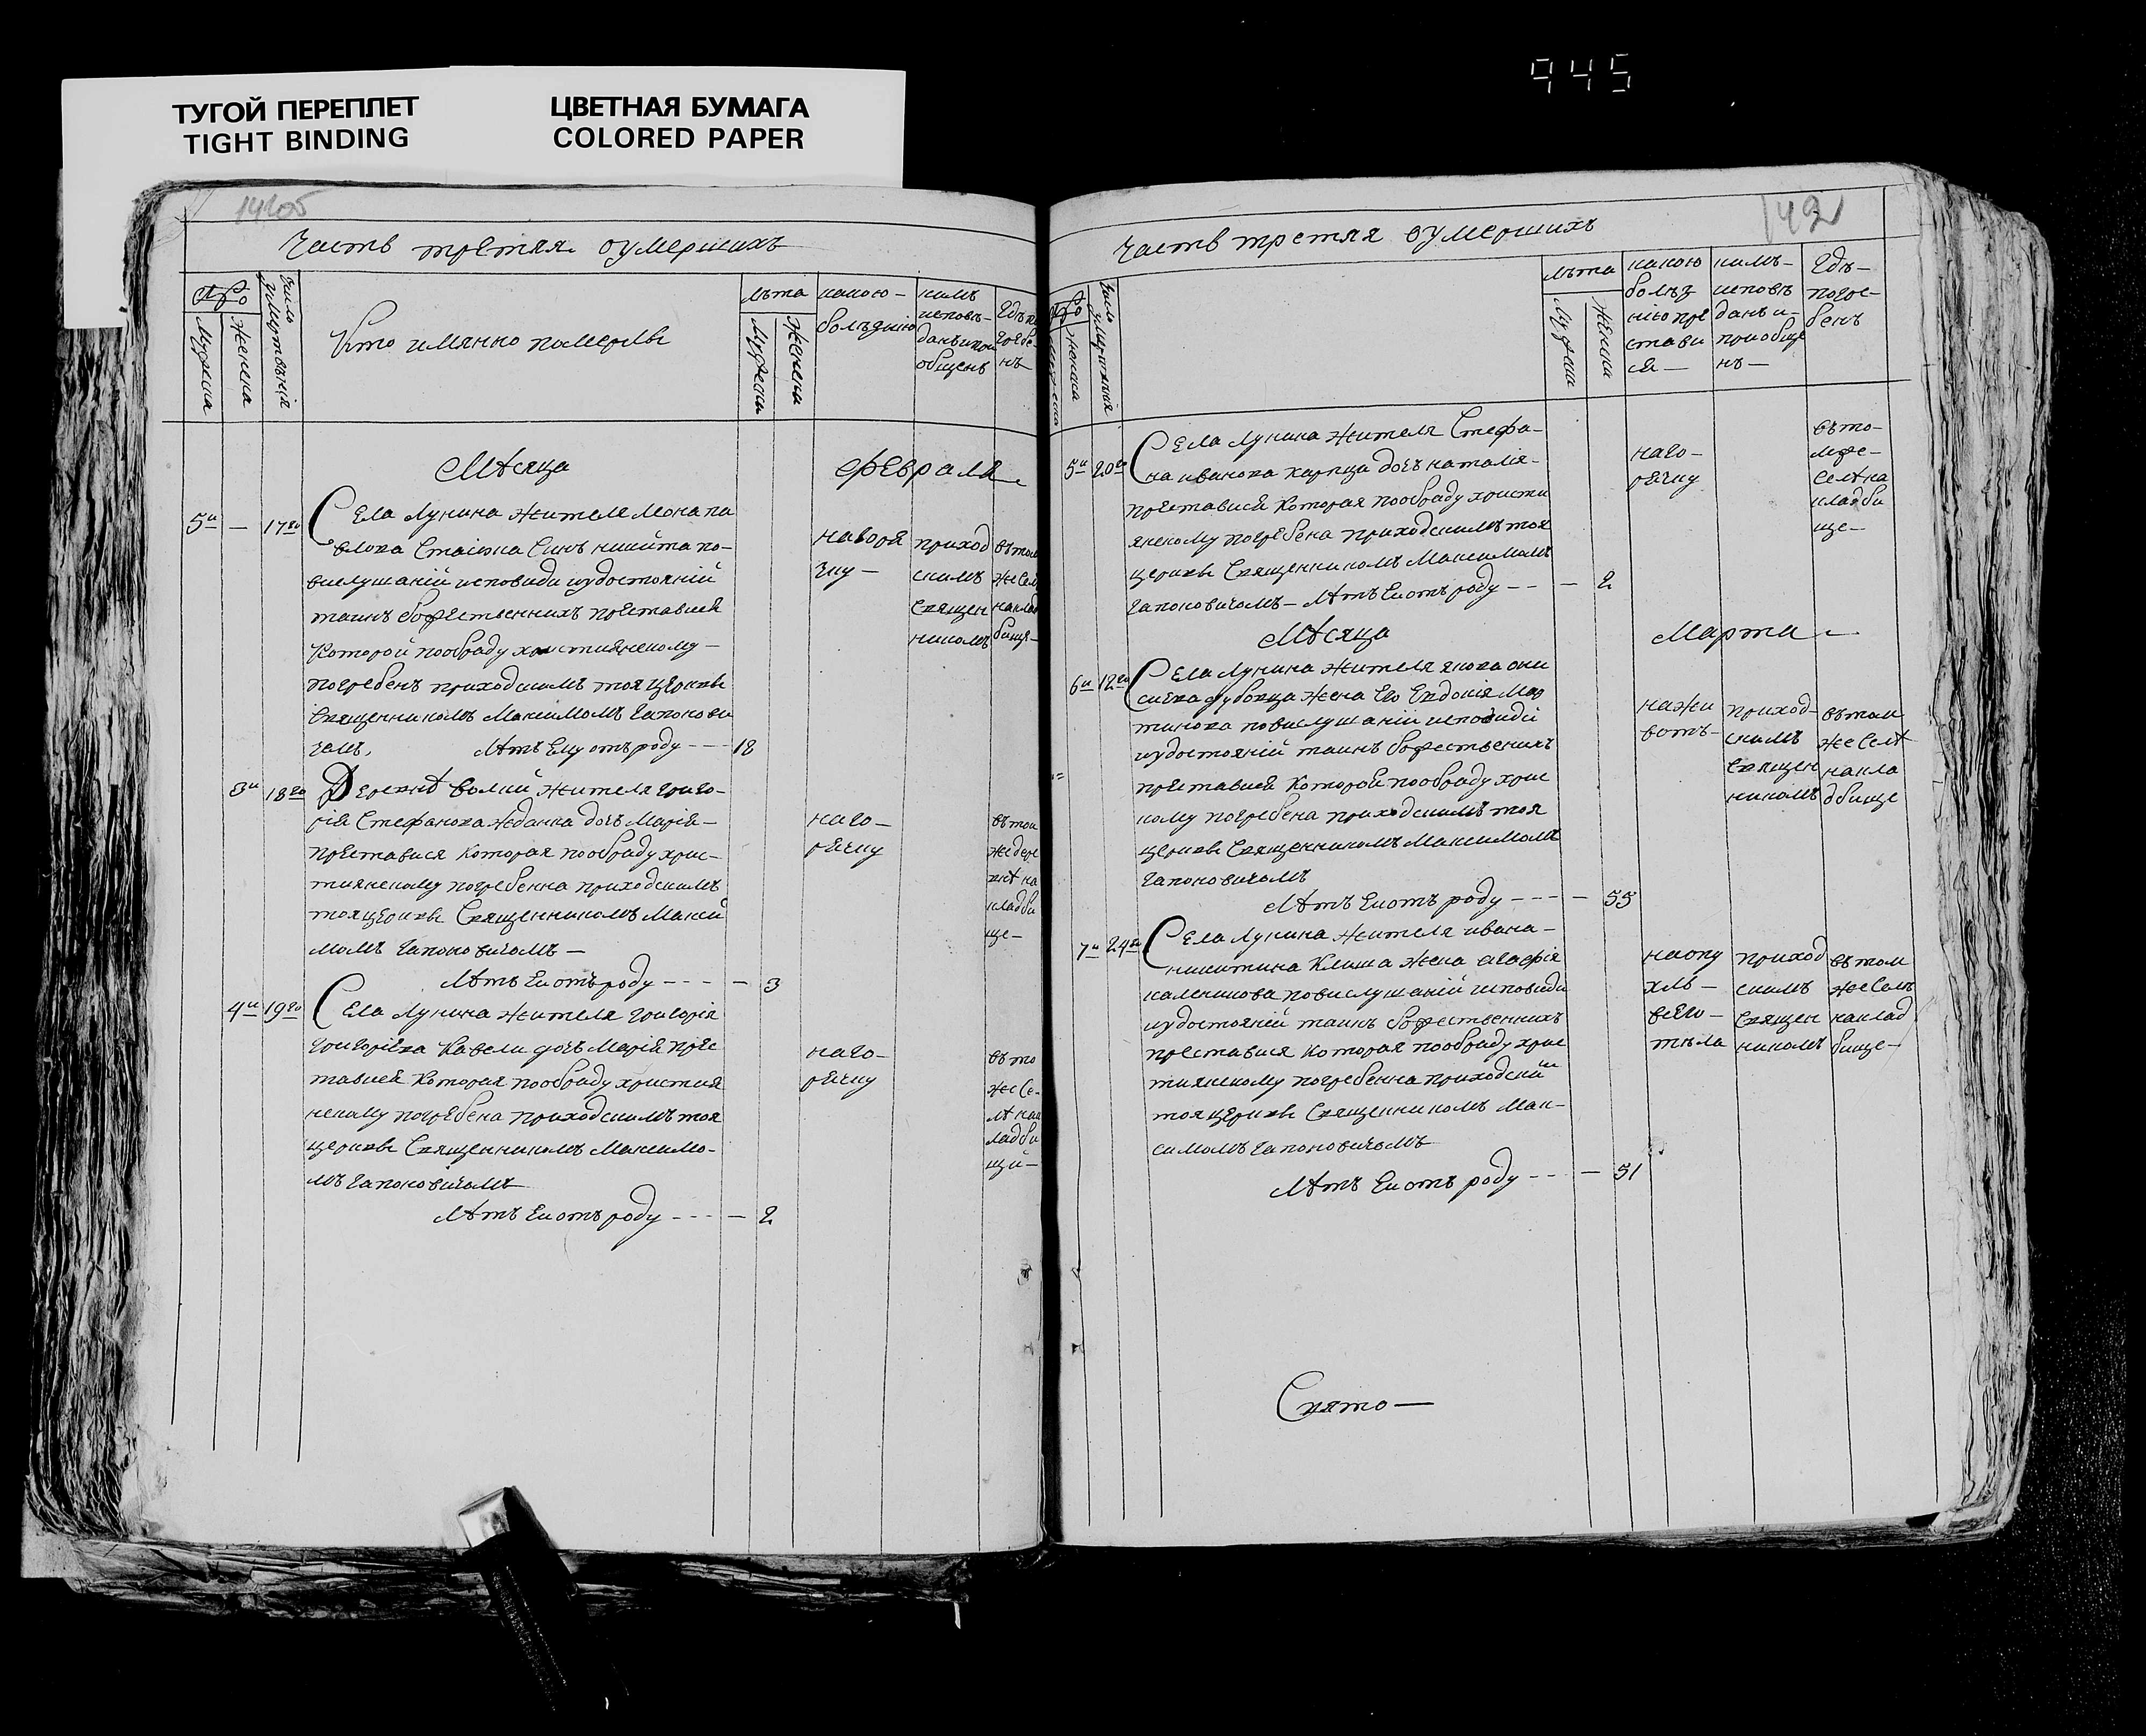 945
ТУГОЙ ПЕРЕПЛЕТ ЦВЕТНАЯ БУМАГА
TIGHT BINDING COLORED PAPER
Часть третяя оумершихъ
Число умертвѣній
Мужеска
Женска
Кто имянно померлы
лѣта
Мужеска
Женска
какою-
болѣзнію
кимъ
исповѣ-
данъ и при
общенъ
Гдѣ по
гребе-
нъ
Мѣсяца Февраля
5й — 17го Села Лунина жителя Мона па
влова Син никита по-
вислушаній исповиди иудостояній
таинъ божественнихъ преставися
Которой пообряду християнскому-
погребенъ приходскимъ тоя церкви
Священникомъ Максимомъ Гапонови
чемъ, Лѣтъ Ему отъ роду --- 18
наворя
чку -
приход
скимъ
священ
никомъ
втом
же сел
наклад
бище-
3й 18го Деревнѣ Волки жителя григо-
рія Стефанова Жданка дочъ Марія-
преставися которая пообряду хрис-
тиянскому погребенна приходскимъ
тоя церкви Священникомъ Макси
момъ Гапоновичомъ-
Лѣтъ Еи отъ роду --- — 3
наго-
рячку
втои
ждере
внѣ на
кладби
ще-
4й 19го Села Лунина жителя григорія
григоріева Кавели дочъ Марія пре
тавися Которая пообряду християн
нскому погребена приходскимъ тоя
церкви Священникомъ Максимо-
мъ Гапоновичомъ
Лѣтъ Еи отъ роду --- — 2
наго-
рячку
вто
же Се-
лѣ нак
ладби
щи-
142
Часть третяя оумершихъ
Число умертвій
лѣта
Мужеска
Женска
какою
болѣз
нію пре
стави
ся-
кимъ-
исповѣ
данъ и-
приобще
нъ-
Гдѣ-
погре-
бенъ
5й 20го Села Лунина жителя Стефа-
на иванова карпца дочъ наталія-
преставися Которая пообряду христи
янскому погребена приходскимъ тоя
церкви Священникомъ Максимомъ
Гапоновичомъ- Лѣтъ Еи отъ роду -- — 2
наго-
рячку
вто-
мже-
Селѣ на
кладби
ще-
Мѣсяца Марта
6й 12го Села Лунина жителя якова они
сиева дубовца жена Его Евдокія Мар
тинова повислушаній исповиди
иудостояній таинъ божественихъ
преставися Которой пообряду хрис
кому погребена приходскимъ тоя
церкви Священникомъ Максимомъ
Гапоновичомъ
Лѣтъ Еи отъ роду --- — 55
нажи
вотъ-
приход-
скимъ
священ
никомъ
втом
же Селѣ
накла
дбище
7й 24го Села Лунина жителя ивана-
никитина Клиша жена агафія
повислушаній исповиди
иудостояній таинъ божественнихъ
преставися которая пообряду хрис
тиянскому погребенна приходским
тоя церкви Священникомъ Мак-
симомъ Гапоновичомъ
Лѣтъ Еи отъ роду --- — 51
наопу
хль-
всего-
тѣла
приход
скимъ
священ
никомъ
втом
же Селѣ
наклад
бище-
Свято-